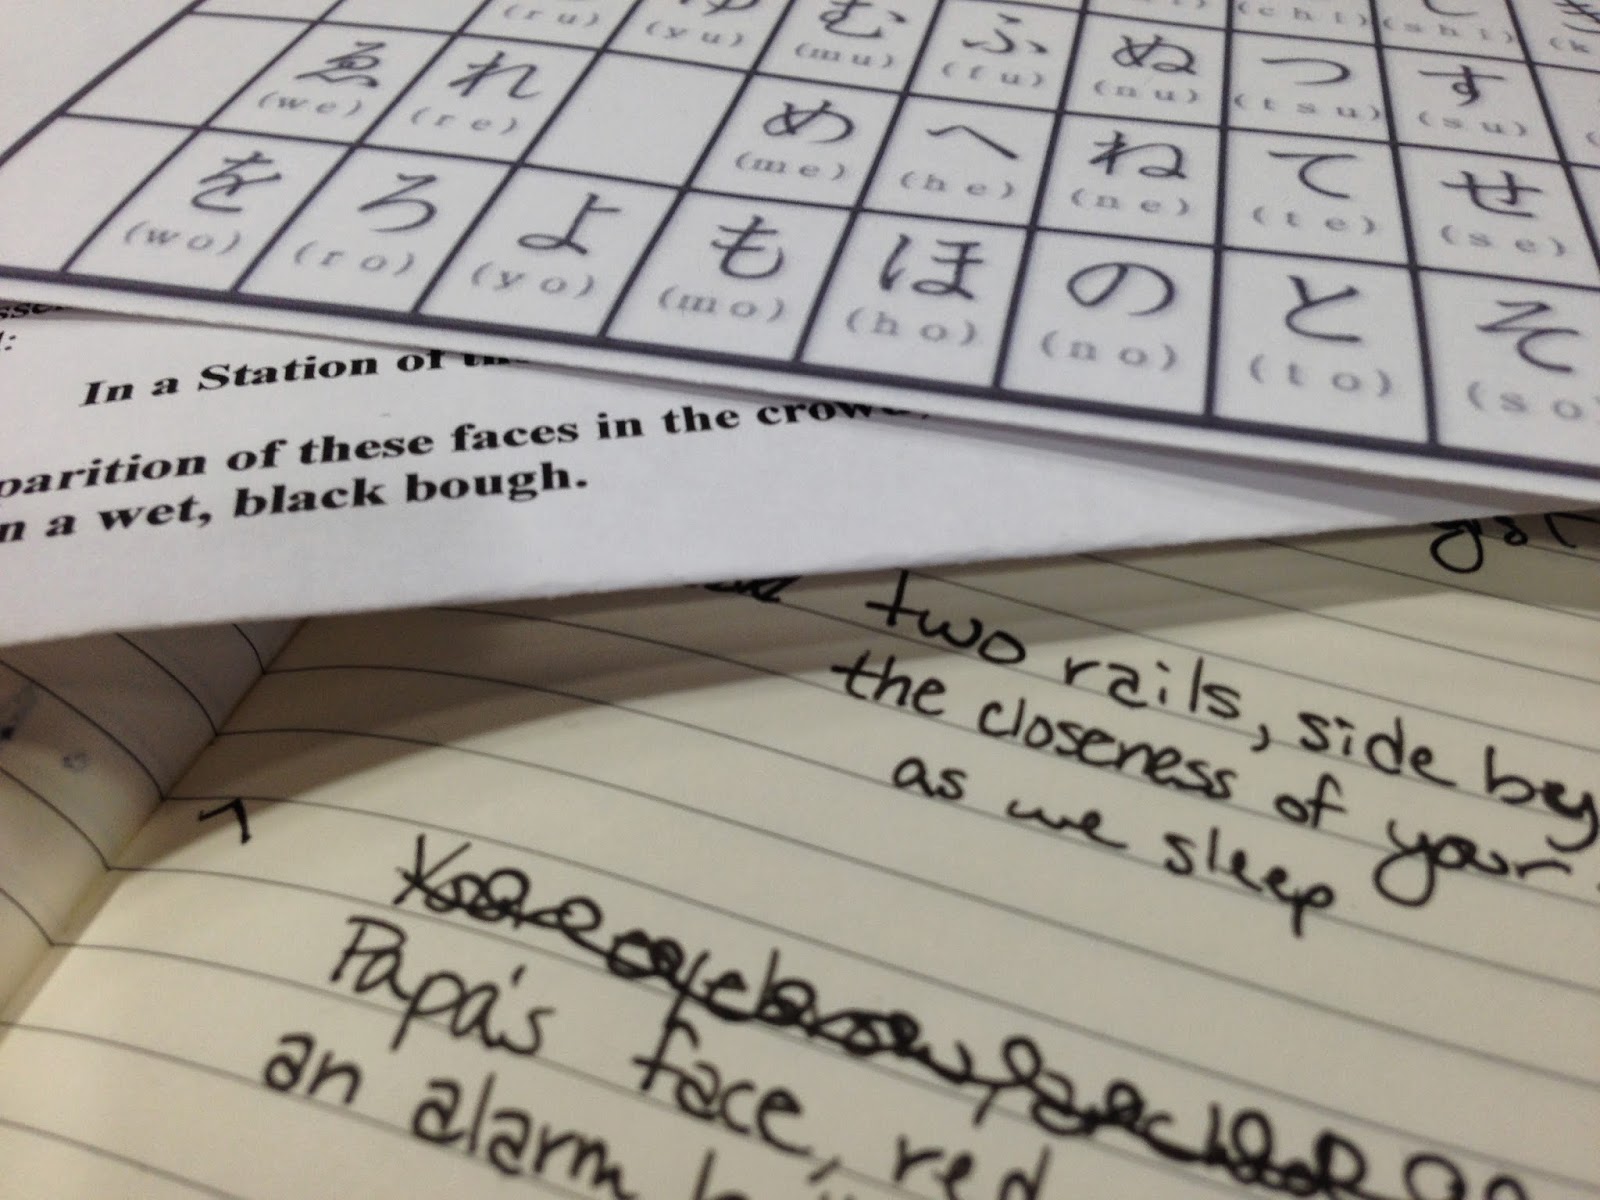 (ru) (yu) む ふ ぬ つ す
ゑ れ (mu) (fu) (nu) (tsu) (su)
(we) (re) め へ ね て せ
を ろ よ (me) (he) (ne) (te) (se)
(wo) (ro) (yo) も ほ の と そ
(mo) (ho) (no) (to) (so)
In a Station of
parition of these faces in the crowd,
n a wet, black bough.
two rails, side by
the closeness of your
as we sleep
Papa's face, red
an alarm